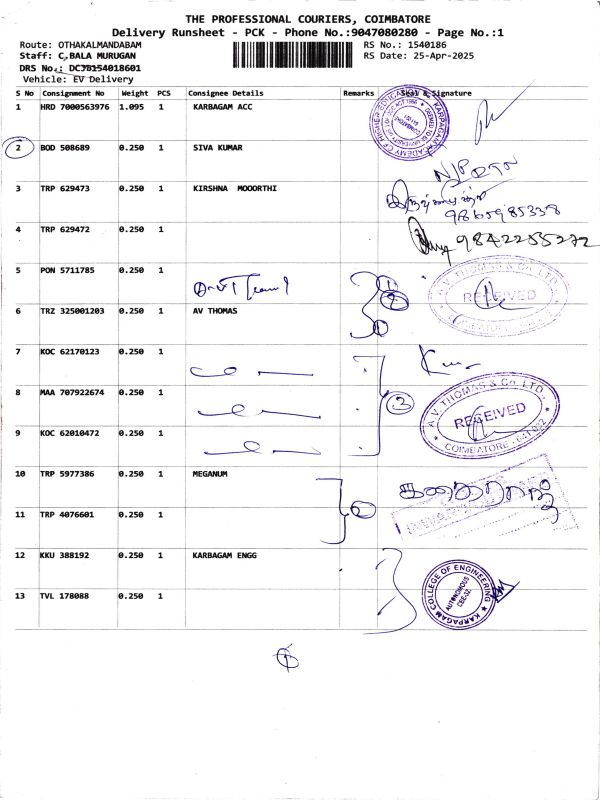 THE PROFESSIONAL COURIERS, COIMBATORE
Delivery Runsheet - PCK - Phone No.:9047080280 - Page No.:1
Route: OTHAKALMANDABAM RS No.: 1540186
Staff: C.BALA MURUGAN RS Date: 25-Apr-2025
DRS No.: DCJB154018601
Vehicle: EV Delivery
S No Consignment No Weight PCS Consignee Details Remarks Seal & Signature
1 HRD 7000563976 1.095 1 KARBAGAM ACC
2 BOD 508689 0.250 1 SIVA KUMAR
3 TRP 629473 0.250 1 KIRSHNA MOOORTHI
9865985338
4 TRP 629472 0.250 1
9842255272
5 PON 5711785 0.250 1
A.V. THOMAS & Co. LTD.
RECEIVED
COIMBATORE
6 TRZ 325001203 0.250 1 AV THOMAS
7 KOC 62170123 0.250 1
8 MAA 707922674 0.250 1 3
A.V. THOMAS & Co. LTD.
RECEIVED
COIMBATORE - 641 032
9 KOC 62010472 0.250 1
10 TRP 5977386 0.250 1 MEGANUM
11 TRP 4076601 0.250 1
12 KKU 388192 0.250 1 KARBAGAM ENGG
KARPAGAM COLLEGE OF ENGINEERING
AUTONOMOUS
CBE-32.
13 TVL 178088 0.250 1